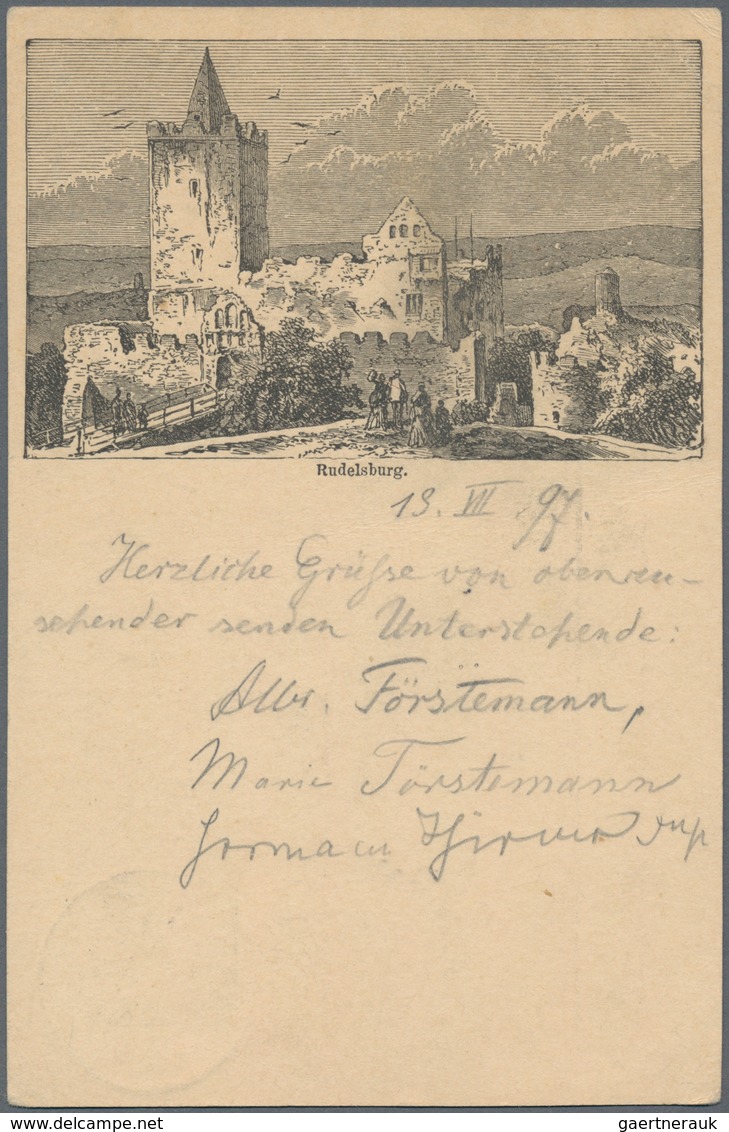 Rudelsburg.
13. VII 97.
Herzliche Grüsse von
sehender senden Unterstehende:
Albr. Förstemann,
Marie Förstemann
Hermann
www.delcampe.net
gaertnerauk